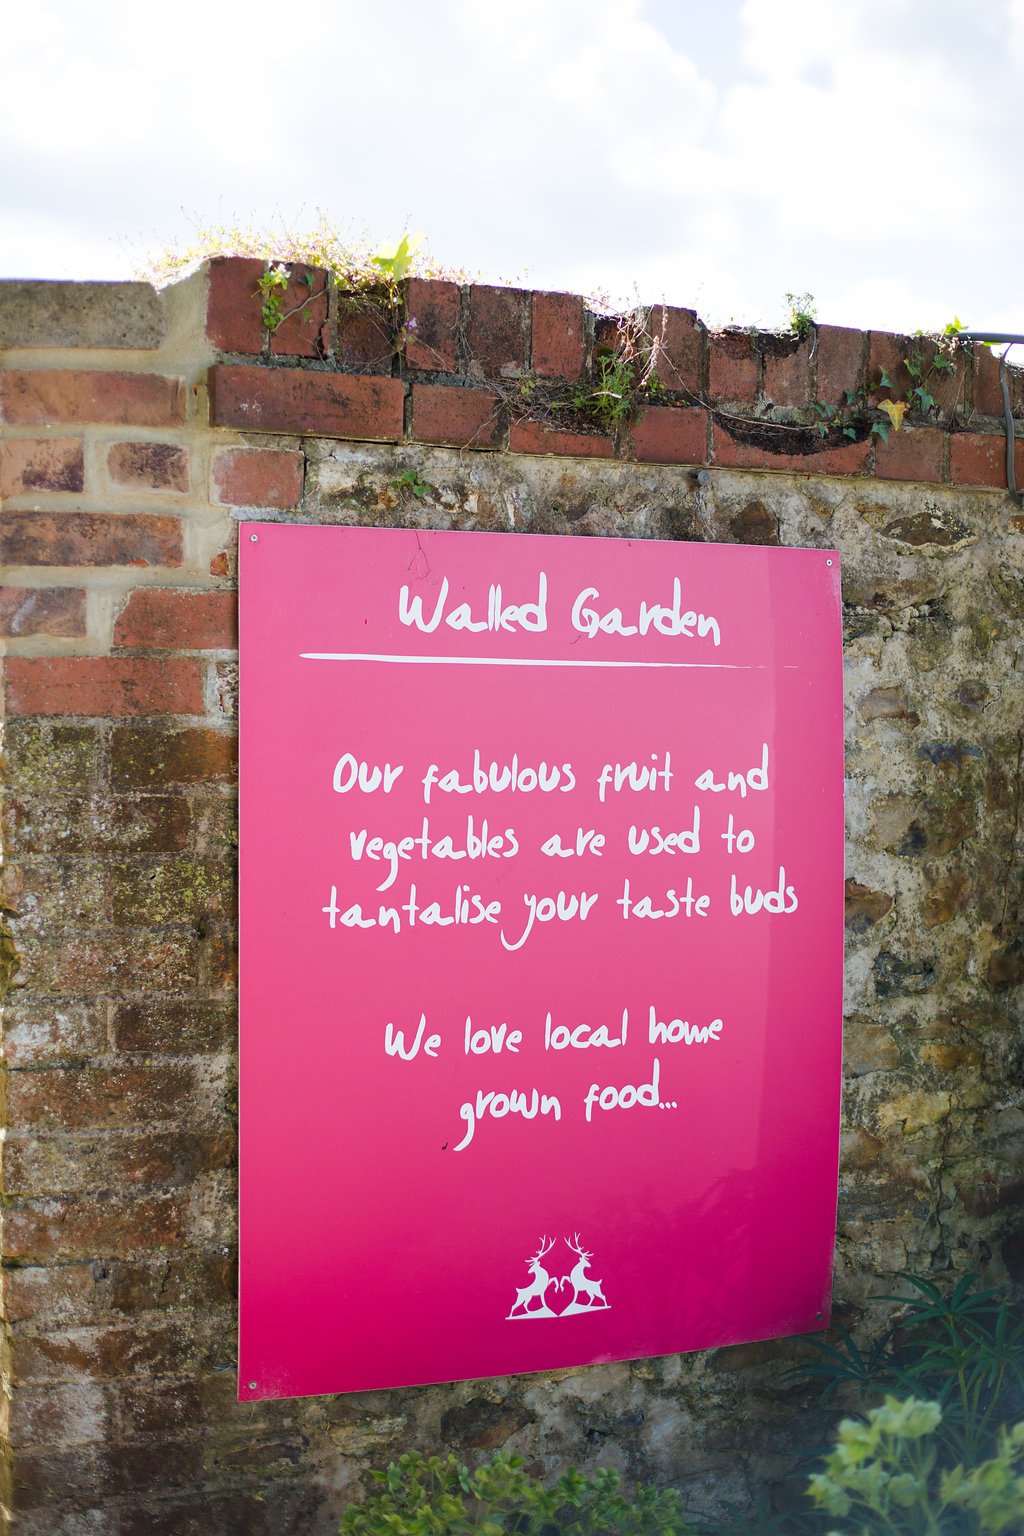 Walled Garden
Our fabulous fruit and
vegetables are used to
tantalise your taste buds
We love local home
grown food...